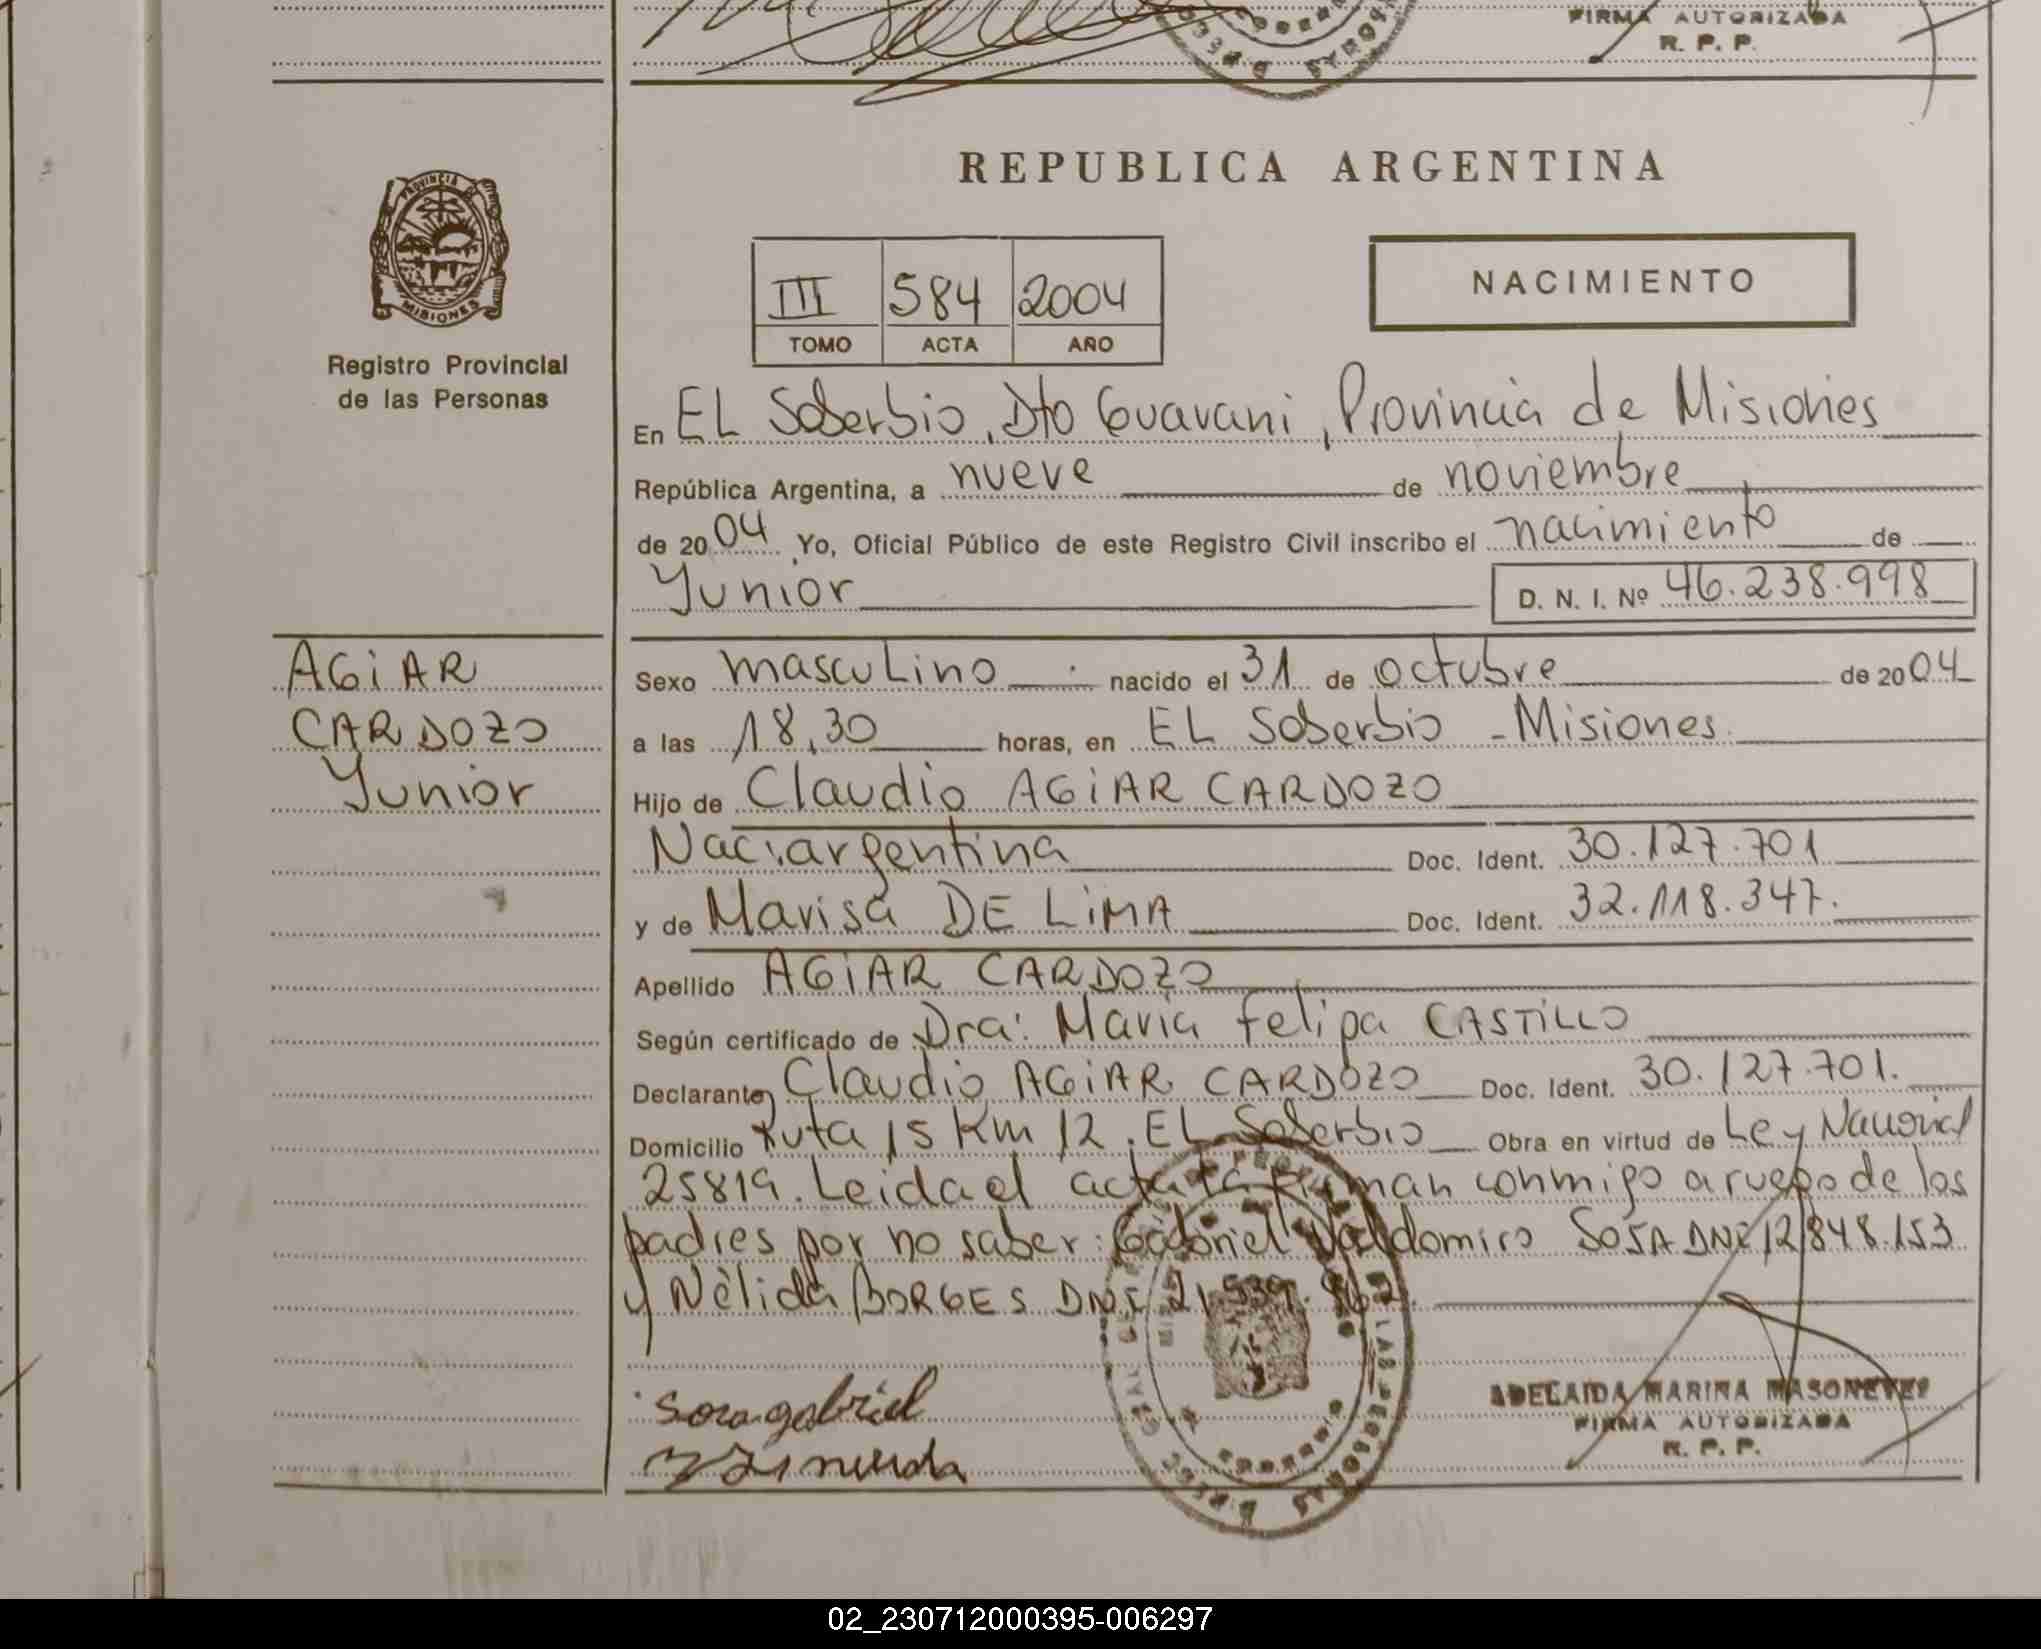 FIRMA AUTORIZADA
R. P. P.
PROVINCIA DE
MISIONES
Registro Provincial
de las Personas
REPUBLICA ARGENTINA
III 584 2004
TOMO ACTA AÑO
NACIMIENTO
En EL Soberbio, Dto Guarani, Provincia de Misiones
República Argentina, a nueve de noviembre
de 2004 Yo, Oficial Público de este Registro Civil inscribo el nacimiento de
Yunior D. N. I. Nº 46.238.998
AGiAR
CARDOZO
Yunior
Sexo masculino nacido el 31 de octubre de 2004
a las 18,30 horas, en EL Soberbio - Misiones.
Hijo de Claudio AGiAR CARDOZO
Nac. argentina Doc. Ident. 30.127.701
y de Marisa DE LiMA Doc. Ident. 32.118.347.
Apellido AGiAR CARDOZO
Según certificado de Dra: Maria Felipa CASTiLLO
Declarante Claudio AGiAR CARDOZO Doc. Ident. 30.127.701.
Domicilio Ruta 15 Km 12. EL Soberbio Obra en virtud de Ley Nacional
25819. Leida el acta la firman conmigo a ruego de los
padres por no saber: Gabriel Valdomiro SOSA DNI 12.848.153
y Nèlida BORGES DNI
sosa gabriel
ADELAIDA MARINA MASONEVES
FIRMA AUTORIZADA
R. P. P.
02_230712000395-006297